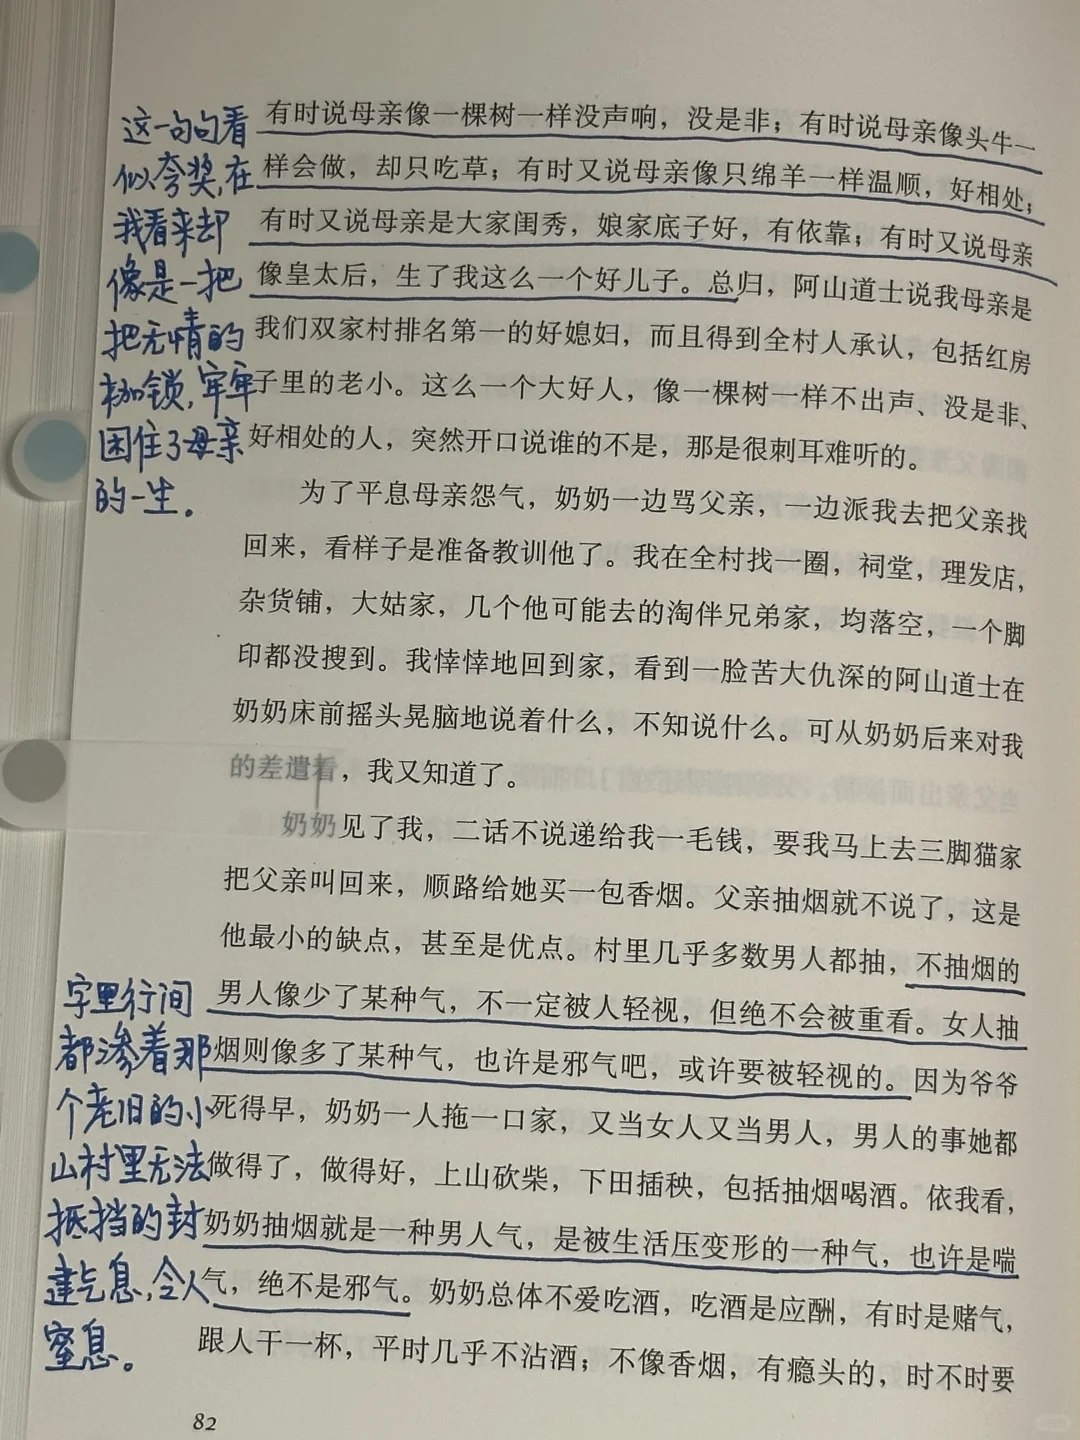 有时说母亲像一棵树一样没声响，没是非；有时说母亲像头牛一
样会做，却只吃草；有时又说母亲像只绵羊一样温顺，好相处；
有时又说母亲是大家闺秀，娘家底子好，有依靠；有时又说母亲
像皇太后，生了我这么一个好儿子。总归，阿山道士说我母亲是
我们双家村排名第一的好媳妇，而且得到全村人承认，包括红房
子里的老小。这么一个大好人，像一棵树一样不出声、没是非、
好相处的人，突然开口说谁的不是，那是很刺耳难听的。
为了平息母亲怨气，奶奶一边骂父亲，一边派我去把父亲找
回来，看样子是准备教训他了。我在全村找一圈，祠堂，理发店，
杂货铺，大姑家，几个他可能去的淘伴兄弟家，均落空，一个脚
印都没搜到。我悻悻地回到家，看到一脸苦大仇深的阿山道士在
奶奶床前摇头晃脑地说着什么，不知说什么。可从奶奶后来对我
的差遣看，我又知道了。
奶奶见了我，二话不说递给我一毛钱，要我马上去三脚猫家
把父亲叫回来，顺路给她买一包香烟。父亲抽烟就不说了，这是
他最小的缺点，甚至是优点。村里几乎多数男人都抽，不抽烟的
男人像少了某种气，不一定被人轻视，但绝不会被重看。女人抽
烟则像多了某种气，也许是邪气吧，或许要被轻视的。因为爷爷
死得早，奶奶一人拖一口家，又当女人又当男人，男人的事她都
做得了，做得好，上山砍柴，下田插秧，包括抽烟喝酒。依我看，
奶奶抽烟就是一种男人气，是被生活压变形的一种气，也许是喘
气，绝不是邪气。奶奶总体不爱吃酒，吃酒是应酬，有时是赌气，
跟人干一杯，平时几乎不沾酒；不像香烟，有瘾头的，时不时要
82
这一句句看
似夸奖，在
我看来却
像是一把
把无情的
枷锁，牢牢
困住了母亲
的一生。
字里行间
都渗着那
个老旧的小
山村里无法
抵挡的封
建气息，令人
窒息。